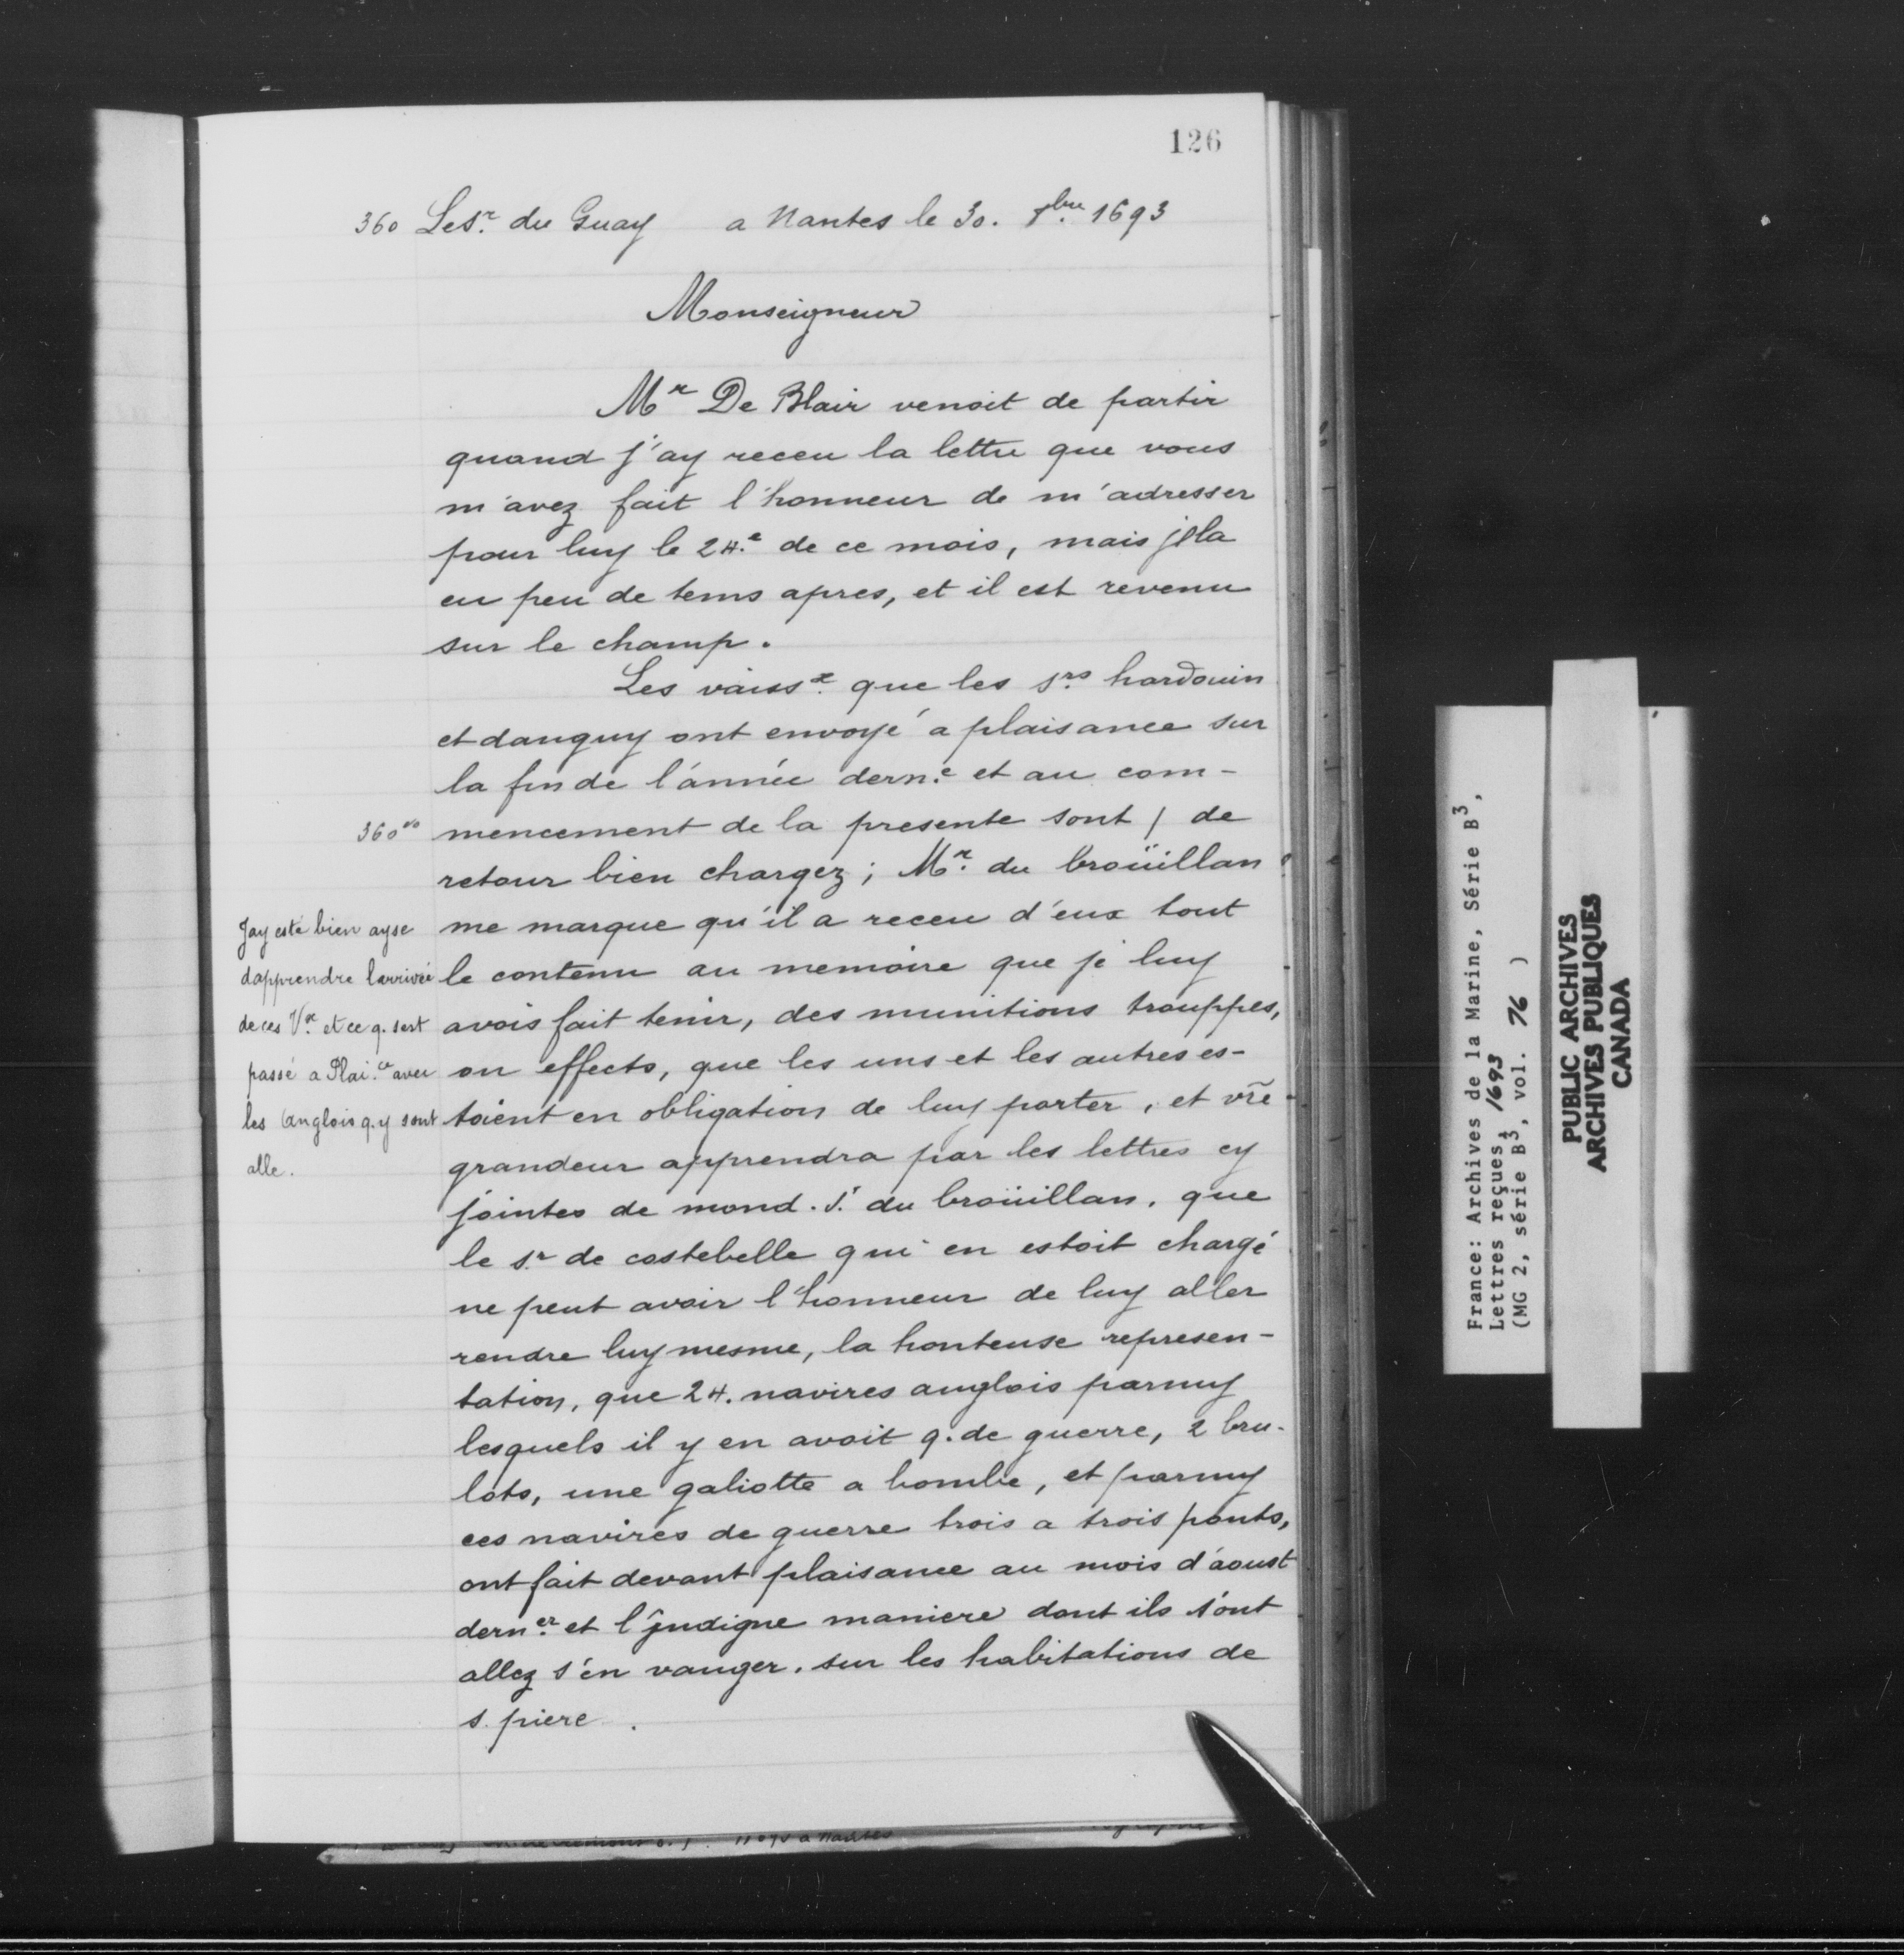 126
360 Le sr. du Guay a Nantes le 30. 7bre 1693
Monseigneur
Mr De Blair venoit de partir
quand j'ay receu la lettre que vous
m'avez fait l'honneur de m'adresser
pour luy le 24.e de ce mois, mais jl la
eu peu de tems apres, et il est revenu
sur le champ.
Les vaissx. que les srs hardouin
et danguy ont envoyé a plaisance sur
la fin de l'année dern.e et au com-
360vo mencement de la presente sont / de
retour bien chargez; Mr. du broüillan
me marque qu'il a receu d'eux tout
le contenu au memoire que je luy
avois fait tenir, des munitions trouppes,
ou effects, que les uns et les autres es-
toient en obligation de luy porter, et vr̃e
grandeur apprendra par les lettres cy
jointes de mond. Sr. du broüillan, que
le sr de costebelle qui en estoit chargé
ne peut avoir l'honneur de luy aller
rendre luy mesme, la honteuse represen-
tation, que 24. navires anglois parmy
lesquels il y en avoit 9. de guerre, 2 bru-
lots, une galiotte a bombe, et parmy
ces navires de guerre trois a trois ponts,
ont fait devant plaisance au mois d'aoust
dern.er et l'jndigne maniere dont ils s'ont
allez s'en vanger, sur les habitations de
s. piere.
Jay esté bien ayse
dapprendre larrivée
de ces Vx. et ce q. sest
passé a Plai.ce avec
les anglois q. y sont
alle.
France: Archives de la Marine, Série B3,
Lettres reçues, 1693
(MG 2, série B3, vol. 76 )
PUBLIC ARCHIVES
ARCHIVES PUBLIQUES
CANADA